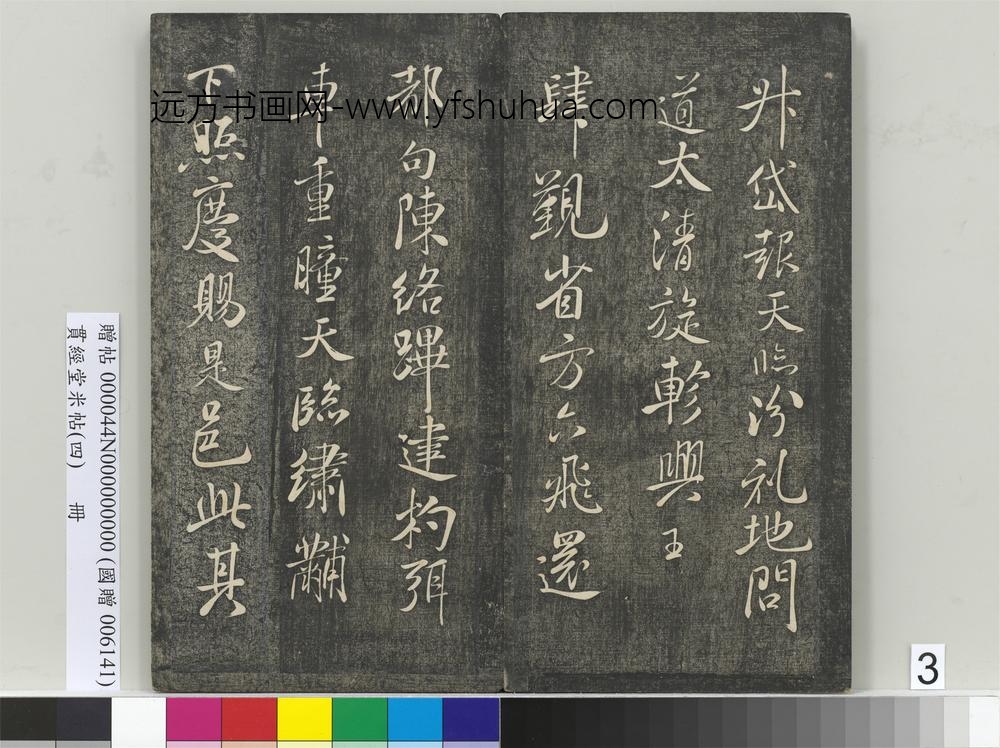 升岱報天临汾礼地問
道太清旋軫興王
肆覲省方六飛還
都句陳絡蹕建杓弭
重瞳天臨繡黼
下照慶賜是邑此其
远方书画网-www.yfshuhua.com
贈帖 000044N000000000 (國贈 006141)
貫經堂米帖(四) 冊
3